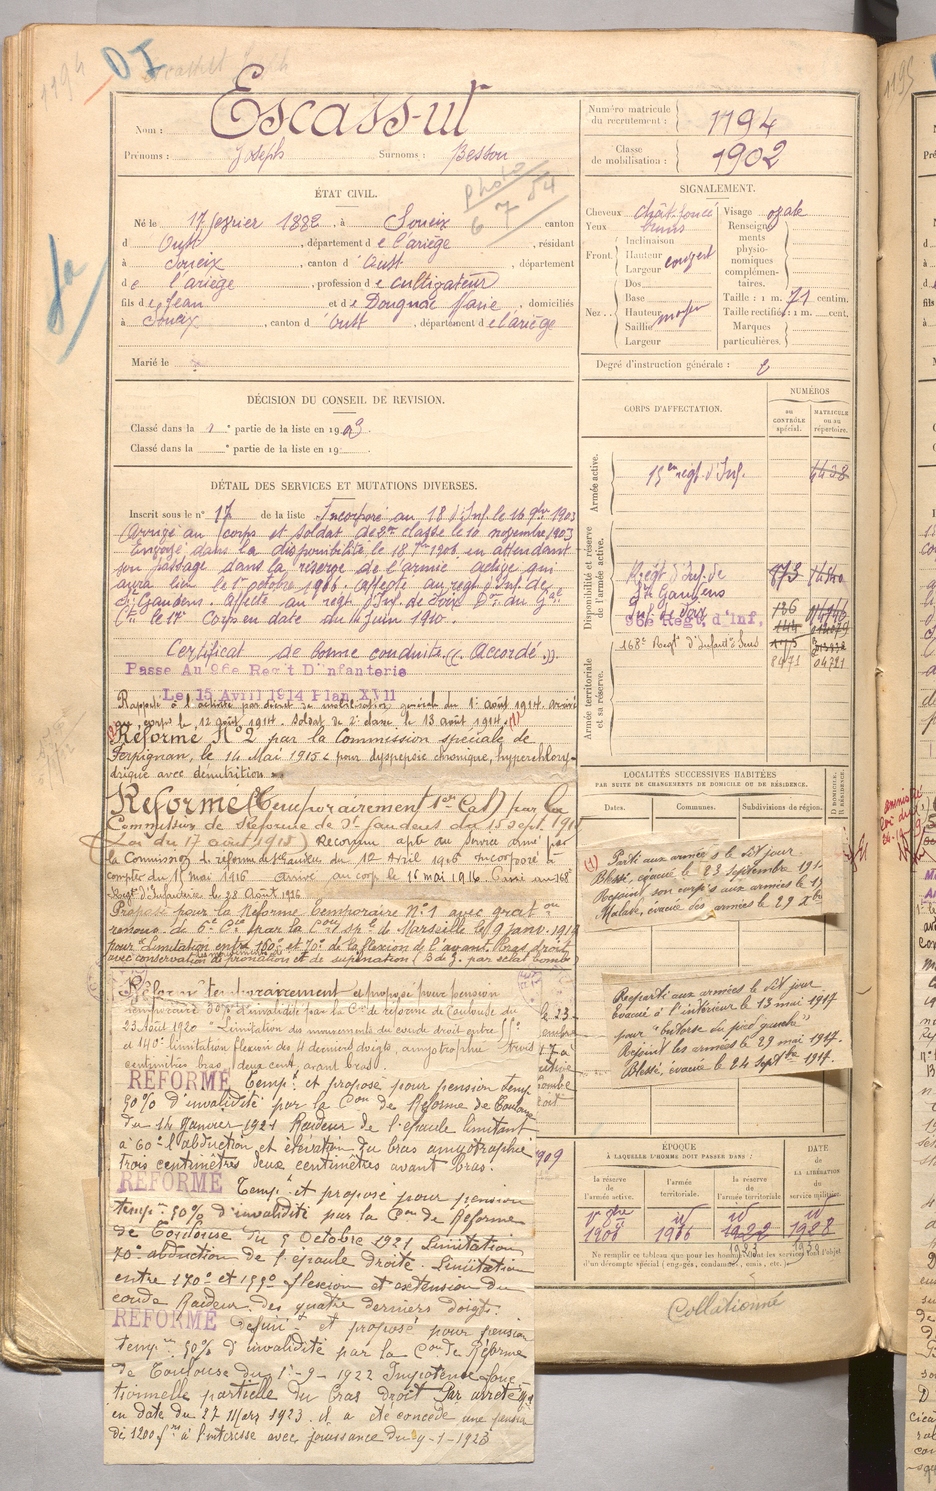 1194
Nom : Escassut
Prénoms : Joseph Surnoms : Besson
Numéro matricule du recrutement : 1194
Classe de mobilisation : 1902
ÉTAT CIVIL.
photo
6 7 54
Né le 17 février 1882, à Soueix canton
d Oust, département de l'ariège, résidant
à Soueix, canton d'Oust, département
de l'ariège, profession de cultivateur
fils de Jean et de Dougnac Marie, domiciliés
à Soueix, canton d'Oust, département de l'ariège
Marié le
SIGNALEMENT.
Cheveux chât. foncé
Yeux bruns
Front : Inclinaison
Hauteur
Largeur couvert
Nez : Dos
Base
Hauteur
Saillie moyen
Largeur
Visage ovale
Renseignements physionomiques complémentaires.
Taille : 1 m. 71 centim.
Taille rectifiée : 1 m. cent.
Marques particulières.
Degré d'instruction générale : 2
DÉCISION DU CONSEIL DE REVISION.
Classé dans la 1e partie de la liste en 1903.
Classé dans la e partie de la liste en 19
DÉTAIL DES SERVICES ET MUTATIONS DIVERSES.
Inscrit sous le n° 17 de la liste Incorporé au 18 d'Inf. le 16 9bre 1903
Arrivé au corps et soldat de 2me classe le 16 novembre 1903
Envoyé dans la disponibilité le 18 7bre 1906, en attendant
son passage dans la réserve de l'armée active qui
aura lieu le 1er octobre 1906. Affecté au régt d'Inf. de
St Gaudens. Affecté au régt d'Inf. de Foix
le 17e Corps en date du 4 Juin 1910.
Certificat de bonne conduite "Accordé"
Passe Au 96e Regit D'Infanterie
Le 15 Avril 1914 Plan XVII
Rappelé à l'activité par décret de mobilisation générale du 1er août 1914. Arrivé
au corps le 12 août 1914. Soldat de 2e classe le 13 août 1914. (1)
Réformé N° 2 par la Commission spéciale de
Perpignan, le 14 Mai 1915 pour dyspepsie chronique, hyperchlorhydrique avec dénutrition
Réformé (Temporairement 1ere Cat) par la
Commission de Réforme de St Gaudens du 15 Sept. 1915
(Loi du 17 août 1915) Reconnu apte au service armé par
la Commission de réforme de St Gaudens du 12 Avril 1916 Incorporé à
compter du 15 mai 1916 arrivé au corps le 16 mai 1916. Passé au 168e
Régt d'Infanterie le 28 Août 1916
Proposé pour la Réforme Temporaire N° 1 avec grat on
renouv. de 6e Cie par la Con spe de Marseille le 9 janv. 1919
pour "Limitation entre 160° et 70° de la flexion de l'avant-bras droit
avec conservation des mouvements de pronation et de supination (B de g. par éclat bombe)
Réformé temporairement et proposé pour pension
temporaire 50% d'invalidité par la Con de réforme de Toulouse du
23 Août 1920 "Limitation des mouvements du coude droit entre
et 140° limitation flexion des 4 derniers doigts, amyotrophie trois
centimètres bras, deux cent. avant bras.
RÉFORMÉ Tempt et proposé pour pension temp
50% d'invalidité par la Con de Réforme de Toulouse
du 14 Janvier 1921 Raideur de l'épaule limitant
à 60° l'abduction et élévation du bras amyotrophie
trois centimètres deux centimètres avant bras.
RÉFORMÉ Tempt et proposé pour pension
temp. 50% d'invalidité par la Con de Réforme
de Toulouse du 5 Octobre 1921 Limitation
70° abduction de l'épaule droite. Limitation
entre 170° et 155° flexion et extension du
coude Raideur des quatre derniers doigts.
RÉFORMÉ Définit et proposé pour pension
temp. 50% d'invalidité par la Con de Réforme
de Toulouse du 1-9-1922 Impotence fonctionnelle
partielle du bras droit Par arrêté
en date du 27 Mars 1923 il a été concédé une pension
de 1200 f à l'intéressé avec jouissance du 9-1-1923
CORPS D'AFFECTATION.
NUMÉROS
AU CONTRÔLE spécial.
MATRICULE ou au répertoire.
Armée active.
15e régt d'Inf. 4438
Disponibilité et réserve de l'armée active.
Régt d'Inf. de St Gaudens 173
Inf. de Foix 186
96e Regt d'Inf. 144
Armée territoriale et sa réserve.
168e Regt d'Infanterie 175
8471 04721
LOCALITÉS SUCCESSIVES HABITÉES
PAR SUITE DE CHANGEMENTS DE DOMICILE OU DE RÉSIDENCE.
Dates. Communes. Subdivisions de région. D DOMICILE. R RÉSIDENCE.
(1) Parti aux armées le dit jour
Blessé, évacué le 23 Septembre 191
Rejoint son corps aux armées le 17
Malade, évacué des armées le 29 Xbre
Reparti aux armées le dit jour
Evacué à l'intérieur le 13 mai 1917
pour "entorse du pied gauche"
Rejoint les armées le 29 mai 1917.
Blessé, évacué le 24 Septbre 1917.
ÉPOQUE
À LAQUELLE L'HOMME DOIT PASSER DANS :
la réserve de l'armée active.
l'armée territoriale.
la réserve de l'armée territoriale
DATE DE LA LIBÉRATION du service militaire.
1er 8bre 1906
1916
1922
1928
Ne remplir ce tableau que pour les hommes dont les services font l'objet
d'un décompte spécial (engagés, condamnés, omis, etc.)
Collationné